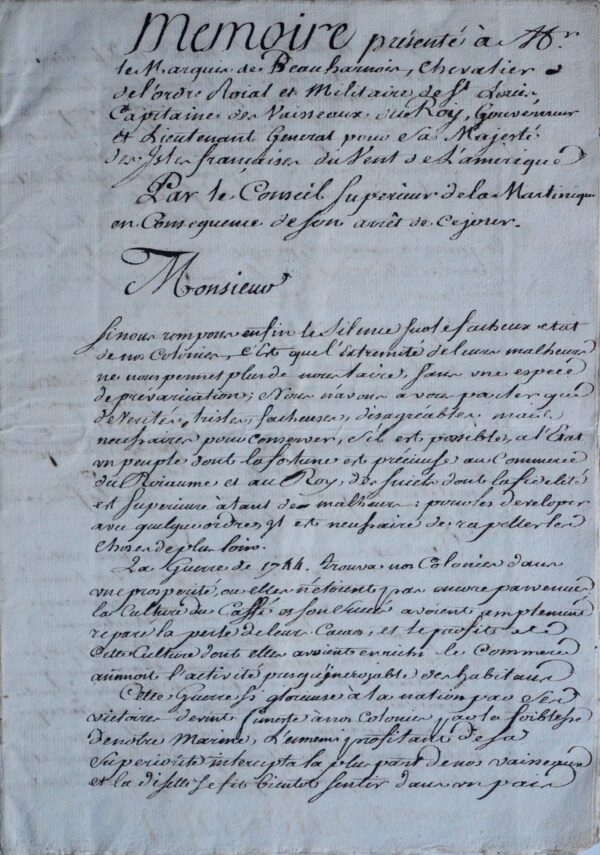 Memoire présenté à Mr
le Marquis de Beauharnois, Chevalier
de l'ordre Roial et Militaire de St Louis
Capitaine des Vaisseaux du Roy, Gouverneur
et Lieutenant General pour Sa Majesté
des Isles françaises du Vent de L'amerique
Par le Conseil Superieur de la Martinique
en Consequence de son arrêt de ce jour.
Monsieur
Si nous rompons enfin le Silence sur le facheux etat
de nos Colonies, C'Est que l'Extremité de leurs malheurs
ne nous permet plus de nous taire, sans une espece
de prévarication; Nous n'avons à vous parler que
de Verités, tristes, facheuses, désagréables mais
necessaires pour conserver, s'il est possible, a l'Etat
un peuple dont la fortune est précieuse au Commerce
du Roiaume et au Roy, des sujets dont la fidelité
est Superieure à tant de malheurs; pour les developer
avec quelque ordre, il est necessaire de rapeller les
choses de plus loin.
La Guerre de 1744. trouva nos Colonies dans
une prosperité, ou elles n'étoient pas encore parvenues
la Culture du Caffé avoient amplement
reparé la perte de leurs Cacao, et le profit
Cette Culture dont elles avoient enrichi le Commerce
animoit l'activité presqu'incroyable des habitans
Cette Guerre si glorieuse à la nation par Ses
victoires devint funeste à nos Colonies par la foiblesse
de notre Marine, L'ennemi profitant de sa
Superiorité intercepta la plus part de nos vaisseaux
et la disette se fit bientot sentir dans un païs